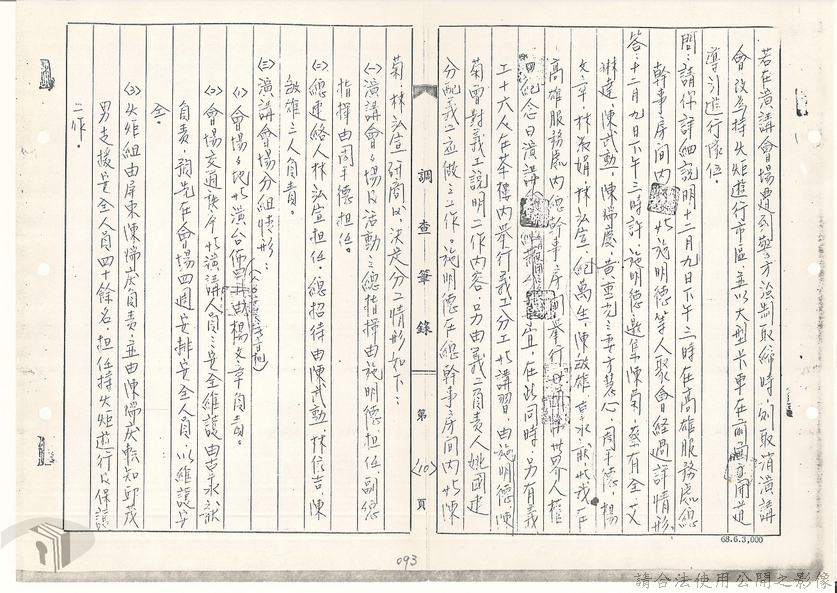 若在演講會場遭到警方強制取締時，則取消演講
會改為持火炬遊行市區，並以大型卡車在前面開道
導引遊行隊伍。
問：請你詳細說明十二月九日下午三時在高雄服務處總
幹事房間內 與施明德等人聚會經過詳情形
答：十二月九日下午三時許，施明德邀集陳菊、蔡有全、艾
琳達、陳武勳、陳瑞慶、黃重光之妻方慧心、周平德、楊
文章、林弘宣、紀萬生、陳敏雄、與我在
高雄服務處內總幹事房間舉行 世界人權
紀念日演講 事宜，在此同時，另有義
工十六人在茶樓內舉行義工分工與講習，由施明德、陳
菊曾對義工說明工作內容，另由義工負責人姚國建
分配義工應做之工作。施明德在總幹事房間內與陳
菊、林弘宣研商以決定分工情形如下：
㈠演講會會場及活動之總指揮由施明德擔任，副總
指揮由周平德擔任。
㈡總連絡人林弘宣擔任，總招待由陳武勳、林信吉、陳
敏雄三人負責。
㈢演講會場分組情形：
⑴會場場地與演台佈置由楊文章負責。
⑵會場交通秩序與演講人員之安全維護由
負責，預先在會場四週安排安全人員，以維護安
全。
⑶火炬組由屏東陳瑞慶負責，並由陳瑞慶轉知邱茂
男支援安全人員四十餘名，担任持火炬遊行及保護
工作。
調查筆錄
第〈10〉頁
68.6.3,000
093
請合法使用公開之影像